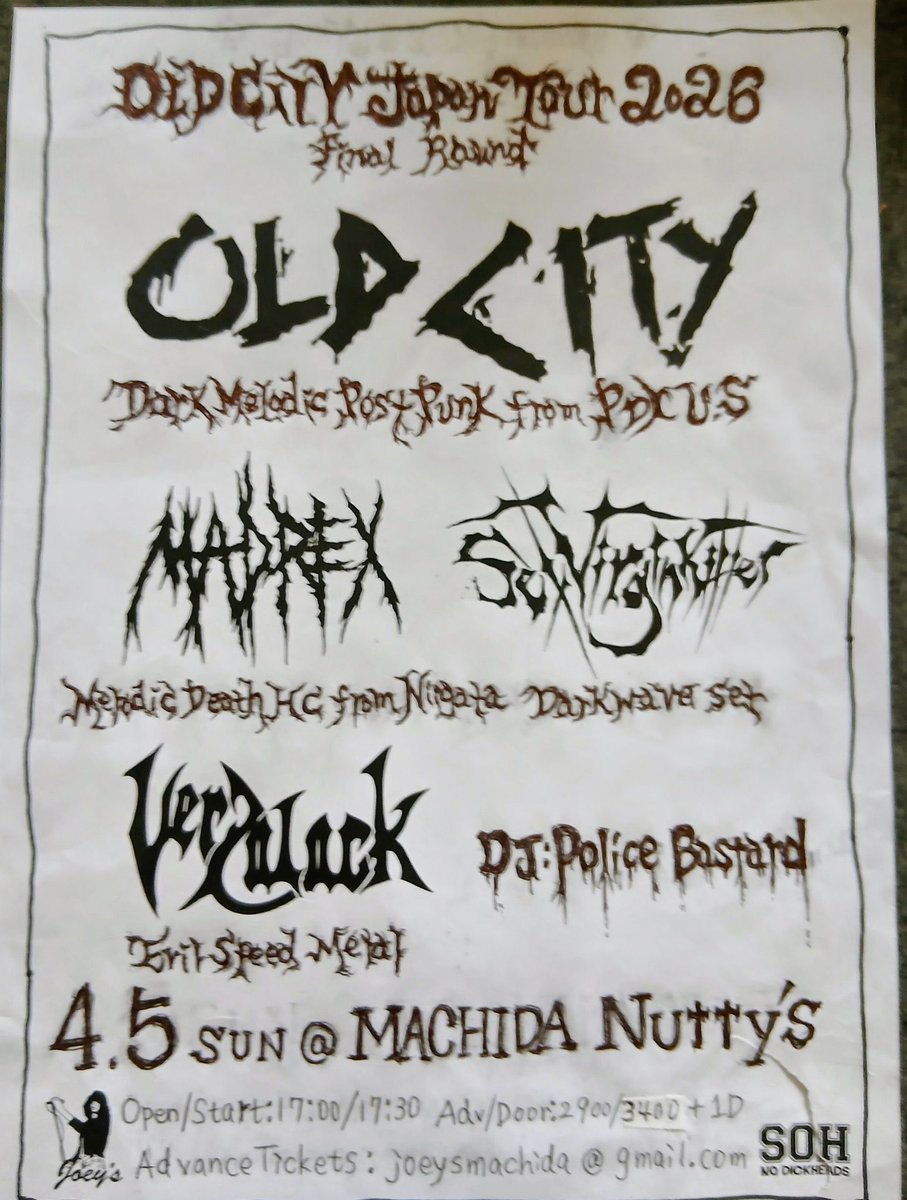 OLD CITY Japan Tour 2026
Final Round
OLD CITY
Dark Melodic Post Punk from PDX U.S
MADREX
SexVirginKiller
Melodic Death HC from Niigata
Darkwave set
Verzalack
DJ:Police Bastard
Evil Speed Metal
4.5 SUN @ MACHIDA Nutty's
Open/Start:17:00/17:30 Adv/Door:2900/3400+1D
Advance Tickets: joeysmachida@gmail.com
Joey's
SOH
NO DICKHEADS